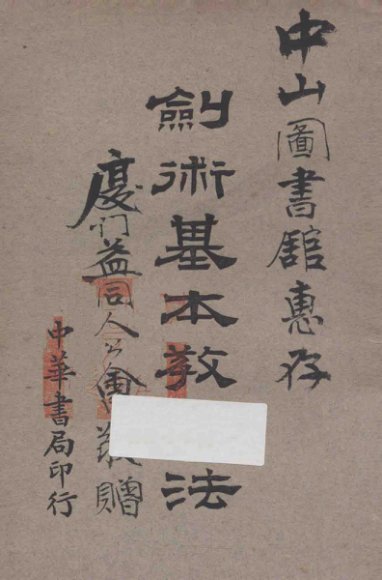 中山圖書舘惠存
劍術基本教法
廈门益同人公會敬贈
中華書局印行